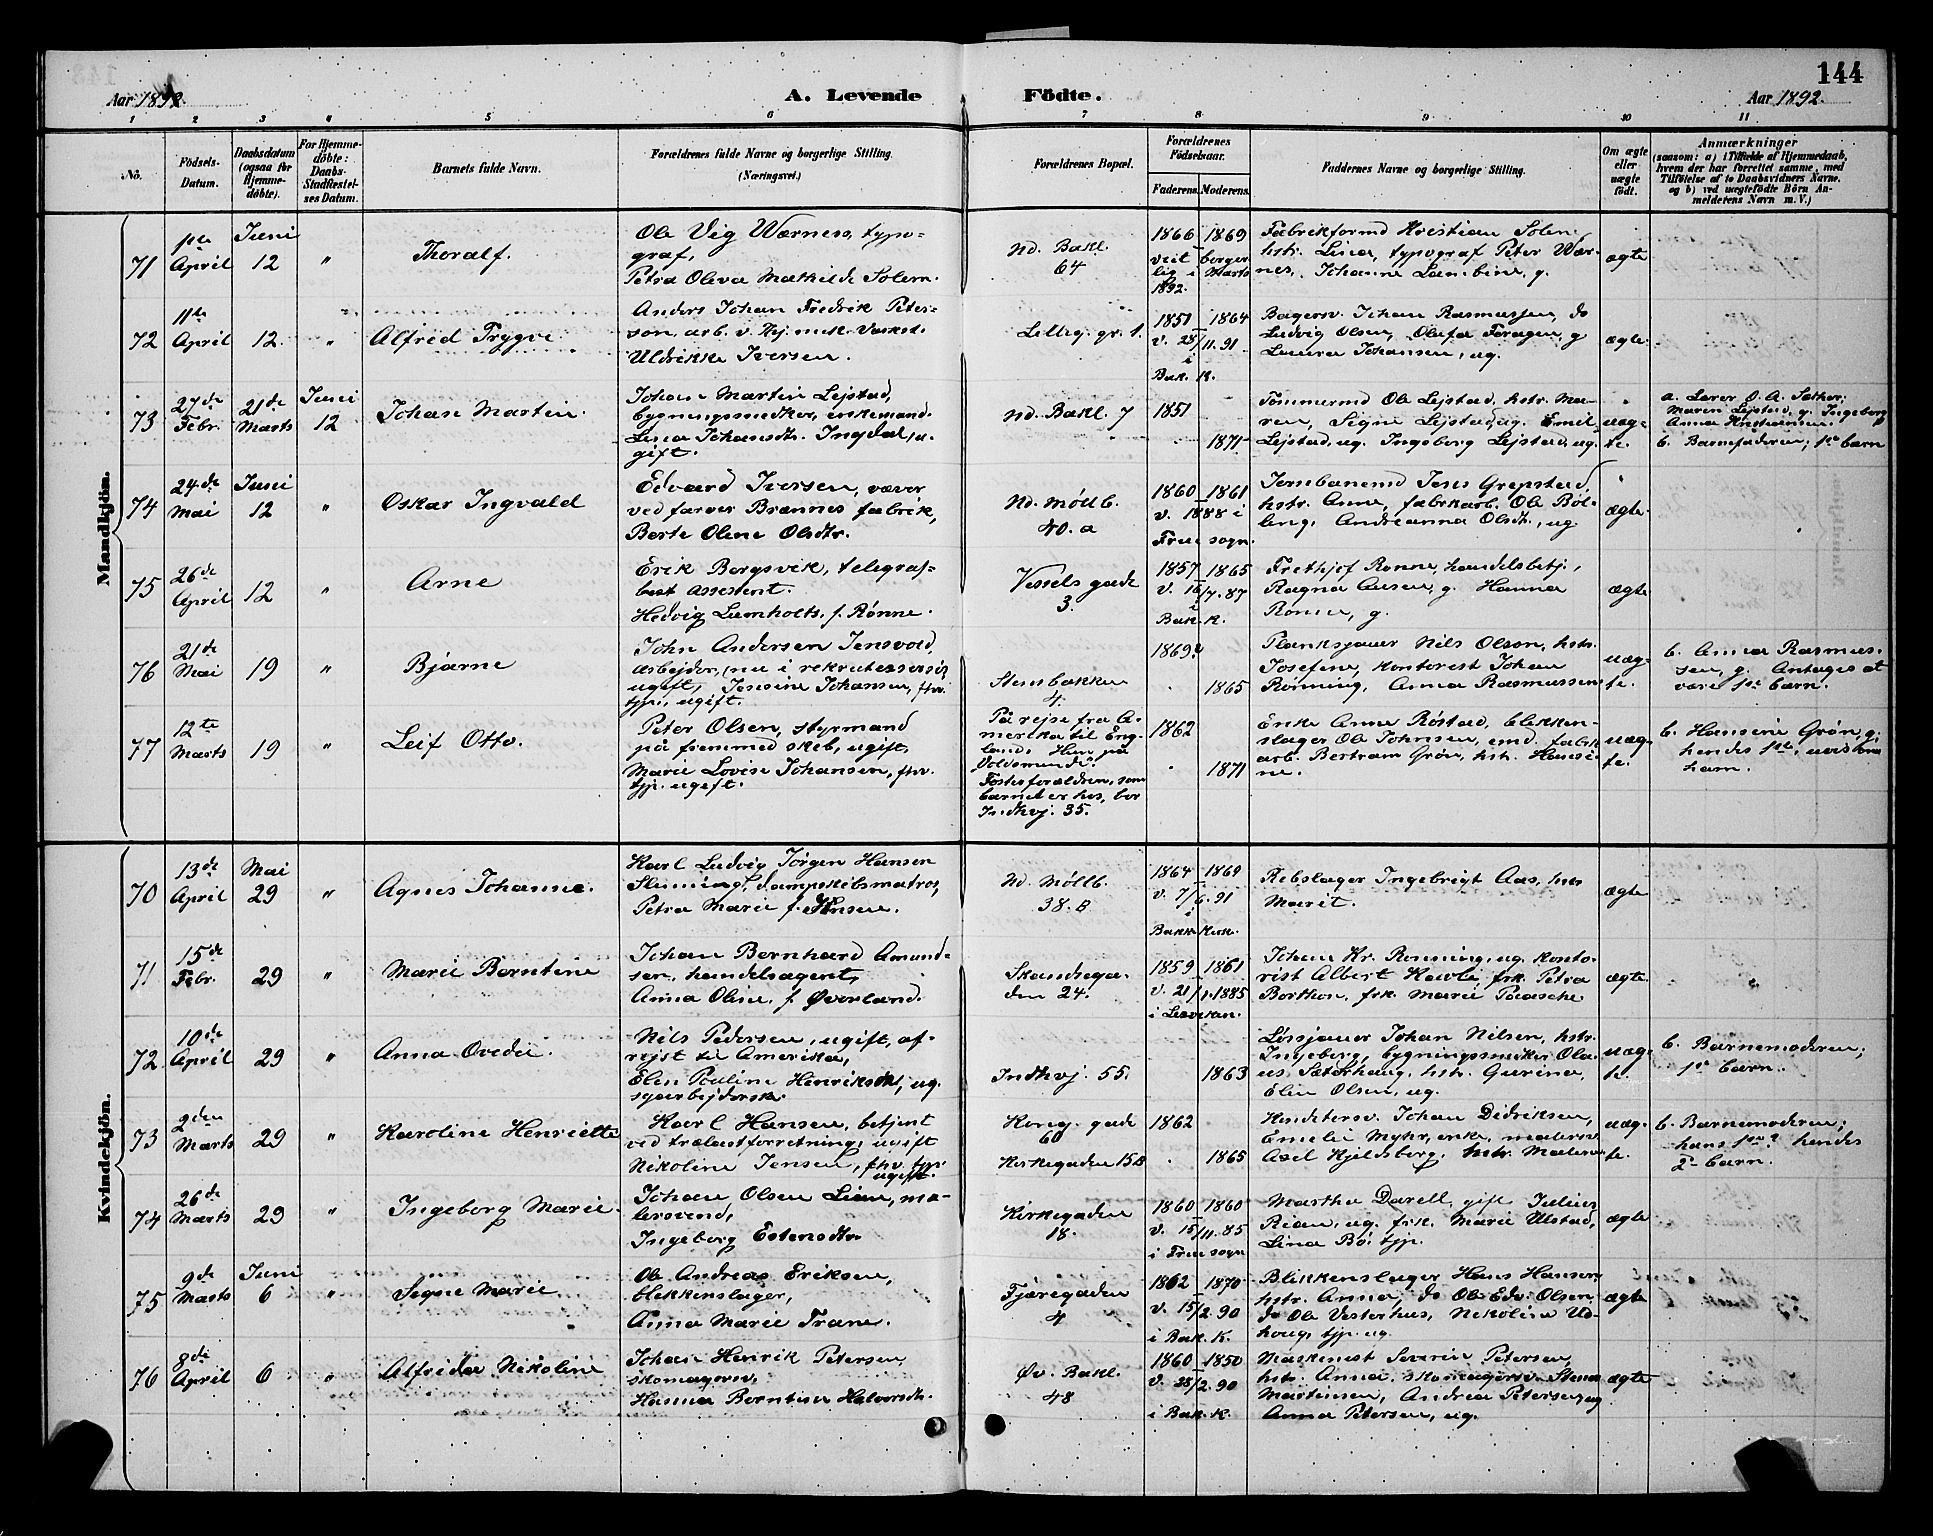 144
Aar 1892.
A. Levende Födte.
Aar 1892.
1 2 3 4 5 6 7 8 9 10 11
No.
Födsels-Datum.
Daabsdatum (ogsaa for Hjemme-döbte).
For Hjemme-döbte: Daabs-Stadfæstelses Datum.
Barnets fulde Navn.
Forældrenes fulde Navne og borgerlige Stilling.
(Næringsvei.)
Forældrenes Bopæl.
Forældrenes Födselsaar.
Faderens. Moderens.
Faddernes Navne og borgerlige Stilling.
Om ægte eller uægte födt.
Anmærkninger
(saasom: a) i Tilfælde af Hjemmedaab,
hvem der har forrettet samme, med
Tilföielse af to Daabsvidners Navne,
og b) ved uægtefödte Börn An-
melderens Navn m. V.)
Mandkjön.
71 1ste April Juni 12 " Thoralf.
Ole Vig Wærness, typo-
graf,
Petra Oliva Mathilde Solem.
Nd. Bakl.
64
1866 1869
veit borger
lig i Marts
1892.
Fabrikformd Kristian Solem
hstr. Lina, typograf Peter Wær-
nes, Johanne Lambine, g.
ægte
72 11te April 12. " Alfred Trygve
Anders Johan Fredrik Peter-
son, arb. v. Thj. mek. Værkst.
Uldrikke Iversen.
Lilleg. gr. 1.
1851 1864
v. 28/11. 91
i
Bak. K.
Bagersv. Johan Rasmussen, do
Ludvig Olsen, Olufa, g
Laura Johansen, ug.
ægte
73 27de Febr. 21de Marts Juni 12 Johan Martin.
Johan Martin Lejstad,
bygningssnedker, enkemand.
Lina Johansdtr. Ingdal, u-
gift.
Nd. Bakl. 7
1851
1871
Tømmermd Ole Lejstad, hstr. Ma-
ren, Signe Lejstad, ug. Emil
Lejstad, ug. Ingeborg Lejstad, ug.
uæg-
te.
a. Lærer O. A. Sæther;
Maren Lejstad, g. Ingeborg
Anna Kristiansen.
b. Barnefaderen; 1ste barn
74 24de Mai Juni 12 " Oskar Ingvald
Edvard Iversen, væver
ved farver Brænnes fabrik,
Berte Oline Olsdtr.
Nd. Möllb.
40. a
1860 1861
v. 1888 i
Frue sogn.
Jernbanemd Jens Grepstad,
hstr. Anne, fabrkarb. Ole Böl-
ling, Andreanna Olsdtr., ug
ægte
75 26de April 12 " Arne
Erik Borgsvik, telegraf-
best assistent.
Hedvig Lumholtz, f. Rönne.
Vessels gade
3.
1857 1865
v. 16/7. 87
i
Bak. K.
Frethjof Rönne, handelsbetj.,
Ragna, g. Hanna
Rönne, g.
ægte
76 21de Mai 19 " Bjarne
John Andersen Jensvold,
arbejder, (nu i rekrutexersis),
ugift, Jensine Johansen, fhv.
tjp., ugift.
Stensbakken
4.
1869.
1865
Planksjauer Nils Olson, hstr.
Josefine, kontorist Johan
Rönning, Anna Rasmussen
uæg-
te.
b. Anna Rasmus-
sen, g. Antages at
være 1ste barn.
77 12te Marts 19 " Leif Otto.
Peter Olsen, styrmand
på fremmed skib, ugift,
Marie Lovise Johansen, fhv.
tjp. ugift.
På rejse fra A-
merika til Eng-
land. Hun på
Voldsminde.
Fosterforældren, som
barnet er hos, bor
Indhvj. 35.
1862
1871
Enke Anne Röstad, blikken-
slager Ole Johnsen, emd. fabrik
arb. Bertram Grön, hstr. Hansi-
ne.
uæg-
te.
b. Hansine Grön, g.
hendes 1ste,
barn.
Kvindekjön.
70 13de April Mai 29 " Agnes Johanne.
Karl Ludvig Jörgen Hansen
dampskibsmatros,
Petra Marie f. Hansen.
Nd. Möllb.
38. B
1864 1869
v. 7/6. 91
i
Bakk. Kirk.
Rebslager Ingebrigt Aas, hstr
Marit.
ægte
71 15de Febr. 29 " Marie Berntine
Johan Bernhard Amund-
sen, handelsagent,
Anna Oline, f. Överland.
Skandsega-
den 24.
1859 1861
v. 21/1. 1885
i Levekan.
Johan Kr. Rönning, ug. konto-
rist Albert Havli, frk. Petra
Borthen, frk. Marie Paasche
ægte. "
72 10de April 29 " Anna Ovedie.
Nils Pedersen, ugift, af-
rejst til Amerika,
Elen Pauline Henriksdt, ug.
syarbejderske.
Indhvj. 55.
1863
Løssjauer Johan Nilsen, hstr.
Ingeborg, bygningssnedker Ola-
us Sæterhaug, hstr. Gurina,
Elen Olsen, ug.
uæg-
te.
b. Barnemoderen;
1ste barn.
73 2den Marts 29 " Karoline Henriette
Karl Hansen, betjent
ved trælastforretning, ugift
Nikoline Jensen, fhv. tjp.
ugift.
Kong. gade
60
Kirkegaden 15B
1862
1865
Johan Didriksen,
Emelie Myhr, enke, malersv
Axel Kjeldsberg, hstr. Mali
uæg-
te.
b. Barnemoderen;
hans 1ste? hendes
2. barn.
74 26de Marts 29 " Ingeborg Marie.
Johan Olsen Lian, ma-
lersvend,
Ingeborg Estensdtr.
Kirkegaden
18.
1860 1860
v. 15/11. 85
i Frue sogn
Martha Darell, gift, Julius
Rian, ug. frk. Marie Ulstad,
Lina Bö, tjp.
ægte
75 9de Marts Juni 6 " Signe Marie
Ole Andreas Eriksen,
blikkenslager,
Anna Marie Trane.
Fjæregaden
4
1862 1870
v. 15/2. 90
i Bak. K.
Blikkenslager Hans Hansen
hstr. Anna, do Ole Edv. Olsen
do Ole Vesterhus, Nikoline Ud-
houg, tjp. ug.
ægte
76 8de April 6 " Alfrida Nikoline
Johan Henrik Petersen
skomagersv,
Hanna Berntine Halvorsdtr.
Øv. Bakl.
48
1860 1850
v. 28/2. 90
i Bak. K.
Maskinist Severin Petersen,
hstr. Anna, skomagersv. Stener
Martinsen, Andrea Petersen, ug
Anna Petersen, ug.
ægte